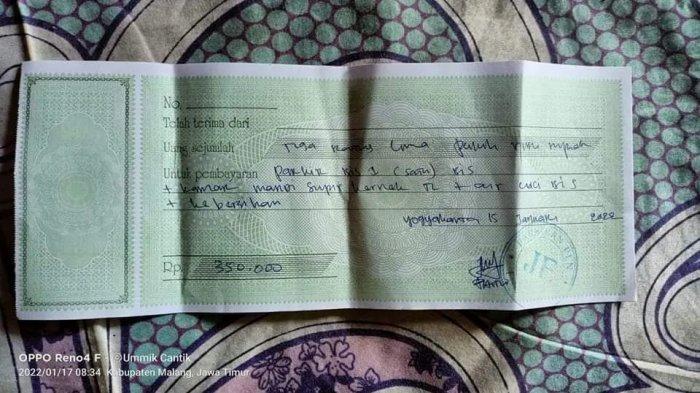 No.
Telah terima dari
Uang sejumlah Tiga Ratus Lima puluh ribu rupiah
Untuk pembayaran Parkir bis 1 (satu) bis
+ kamar mandi supir kernek TL + air cuci bis
+ kebersihan
Yogyakarta 15 Januari 2022
Rp. 350.000
JF
OPPO Reno4 F · ©Ummik Cantik
2022/01/17 08:34 Kabupaten Malang, Jawa Timur